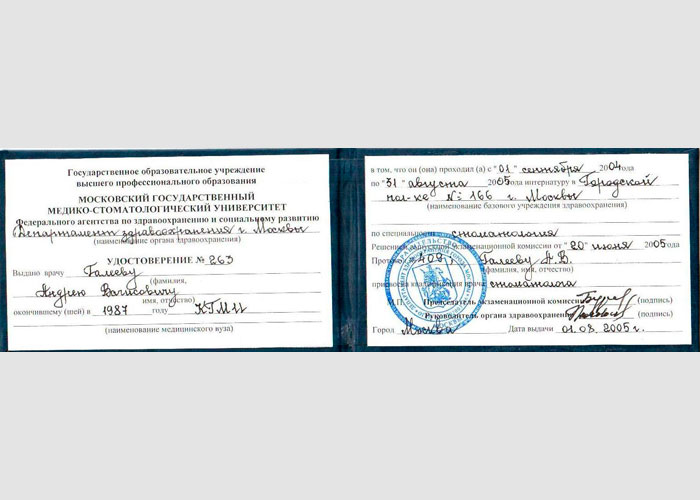 Государственное образовательное учреждение
высшего профессионального образования
МОСКОВСКИЙ ГОСУДАРСТВЕННЫЙ
МЕДИКО-СТОМАТОЛОГИЧЕСКИЙ УНИВЕРСИТЕТ
Федерального агентства по здравоохранению и социальному развитию
Департамент здравоохранения г. Москвы
(наименование органа здравоохранения)
УДОСТОВЕРЕНИЕ № 263
Выдано врачу Галееву
(фамилия,
Андрею Вагисовичу
имя, отчество)
окончившему (шей) в 1987 году КГМИ
(наименование медицинского вуза)
в том, что он (она) проходил (а) с "01" сентября 2004года
по "31" августа 2005года интернатуру в Городской
пол-ке № 166 г. Москвы
(наименование базового учреждения здравоохранения)
по специальности стоматология
Решением выпускной экзаменационной комиссии от "20" июня 2005года
Протокол 409, Галееву А.В.
(фамилия, имя, отчество)
присвоена квалификация врача стоматолога
М.П. Председатель экзаменационной комиссии (подпись)
Руководитель органа здравоохранения (подпись)
Город Москва Дата выдачи 01.03.2005 г.